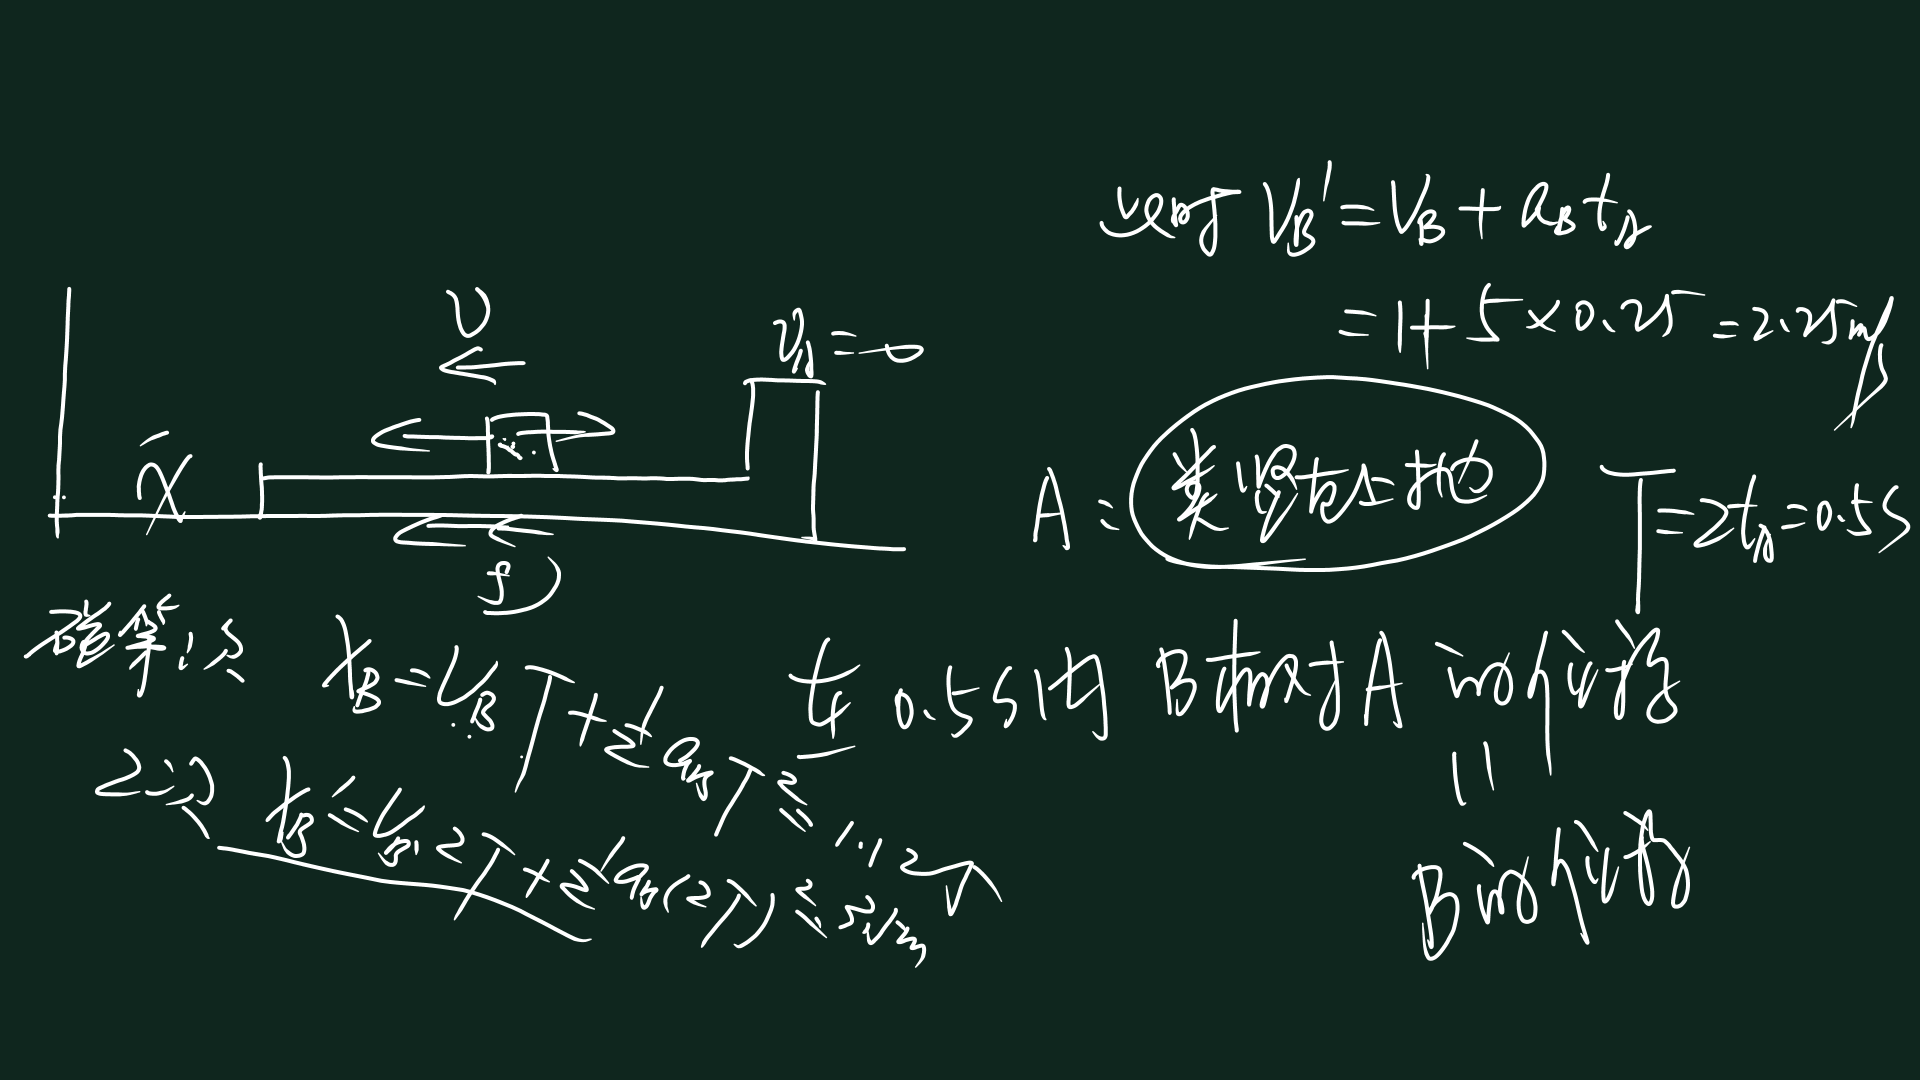 这时 V_B' = V_B + a_B t_A
= 1 + 5 × 0.25 = 2.25m/s
v
v_A = 0
x
f
A: 类竖直上抛
T = 2t_A = 0.5s
碰第1次
x_B = v_B T + ½ a_B T² =
在 0.5s内 B相对A 的位移
=
B的位移
2次 x_B' = v_B · 2T + ½ a_B (2T)² =